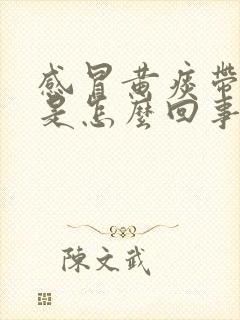 感冒黄痰帶
是怎麼回事
陳文武